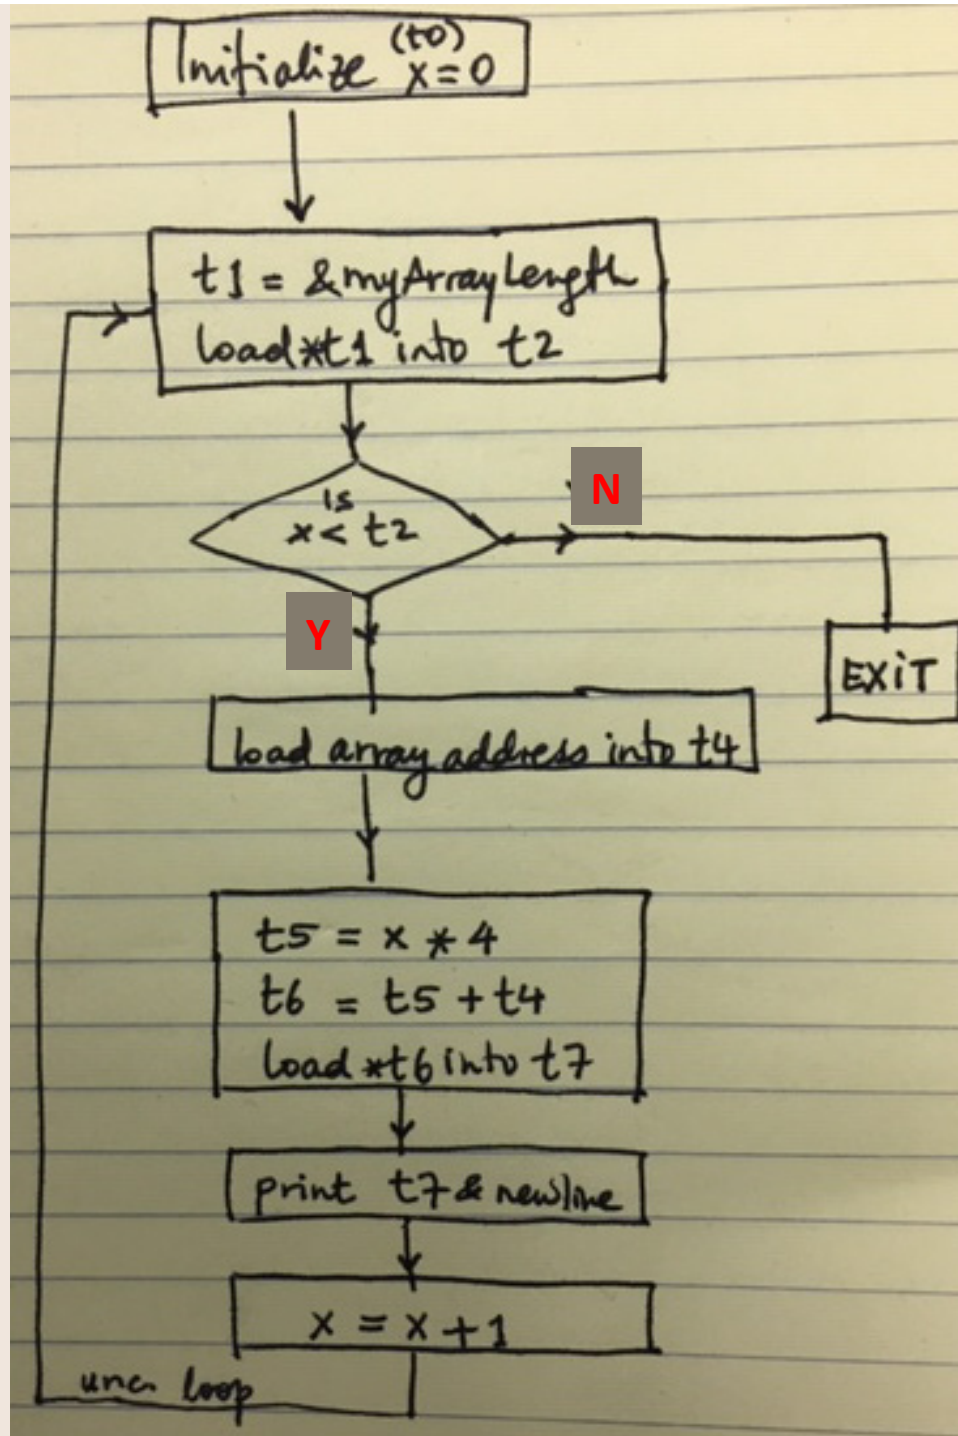 (t0)
Initialize x=0
t1 = &myArrayLength
load *t1 into t2
is
x < t2
N
Y
EXiT
load array address into t4
t5 = x * 4
t6 = t5 + t4
load *t6 into t7
print t7 & newline
x = x + 1
unc. loop